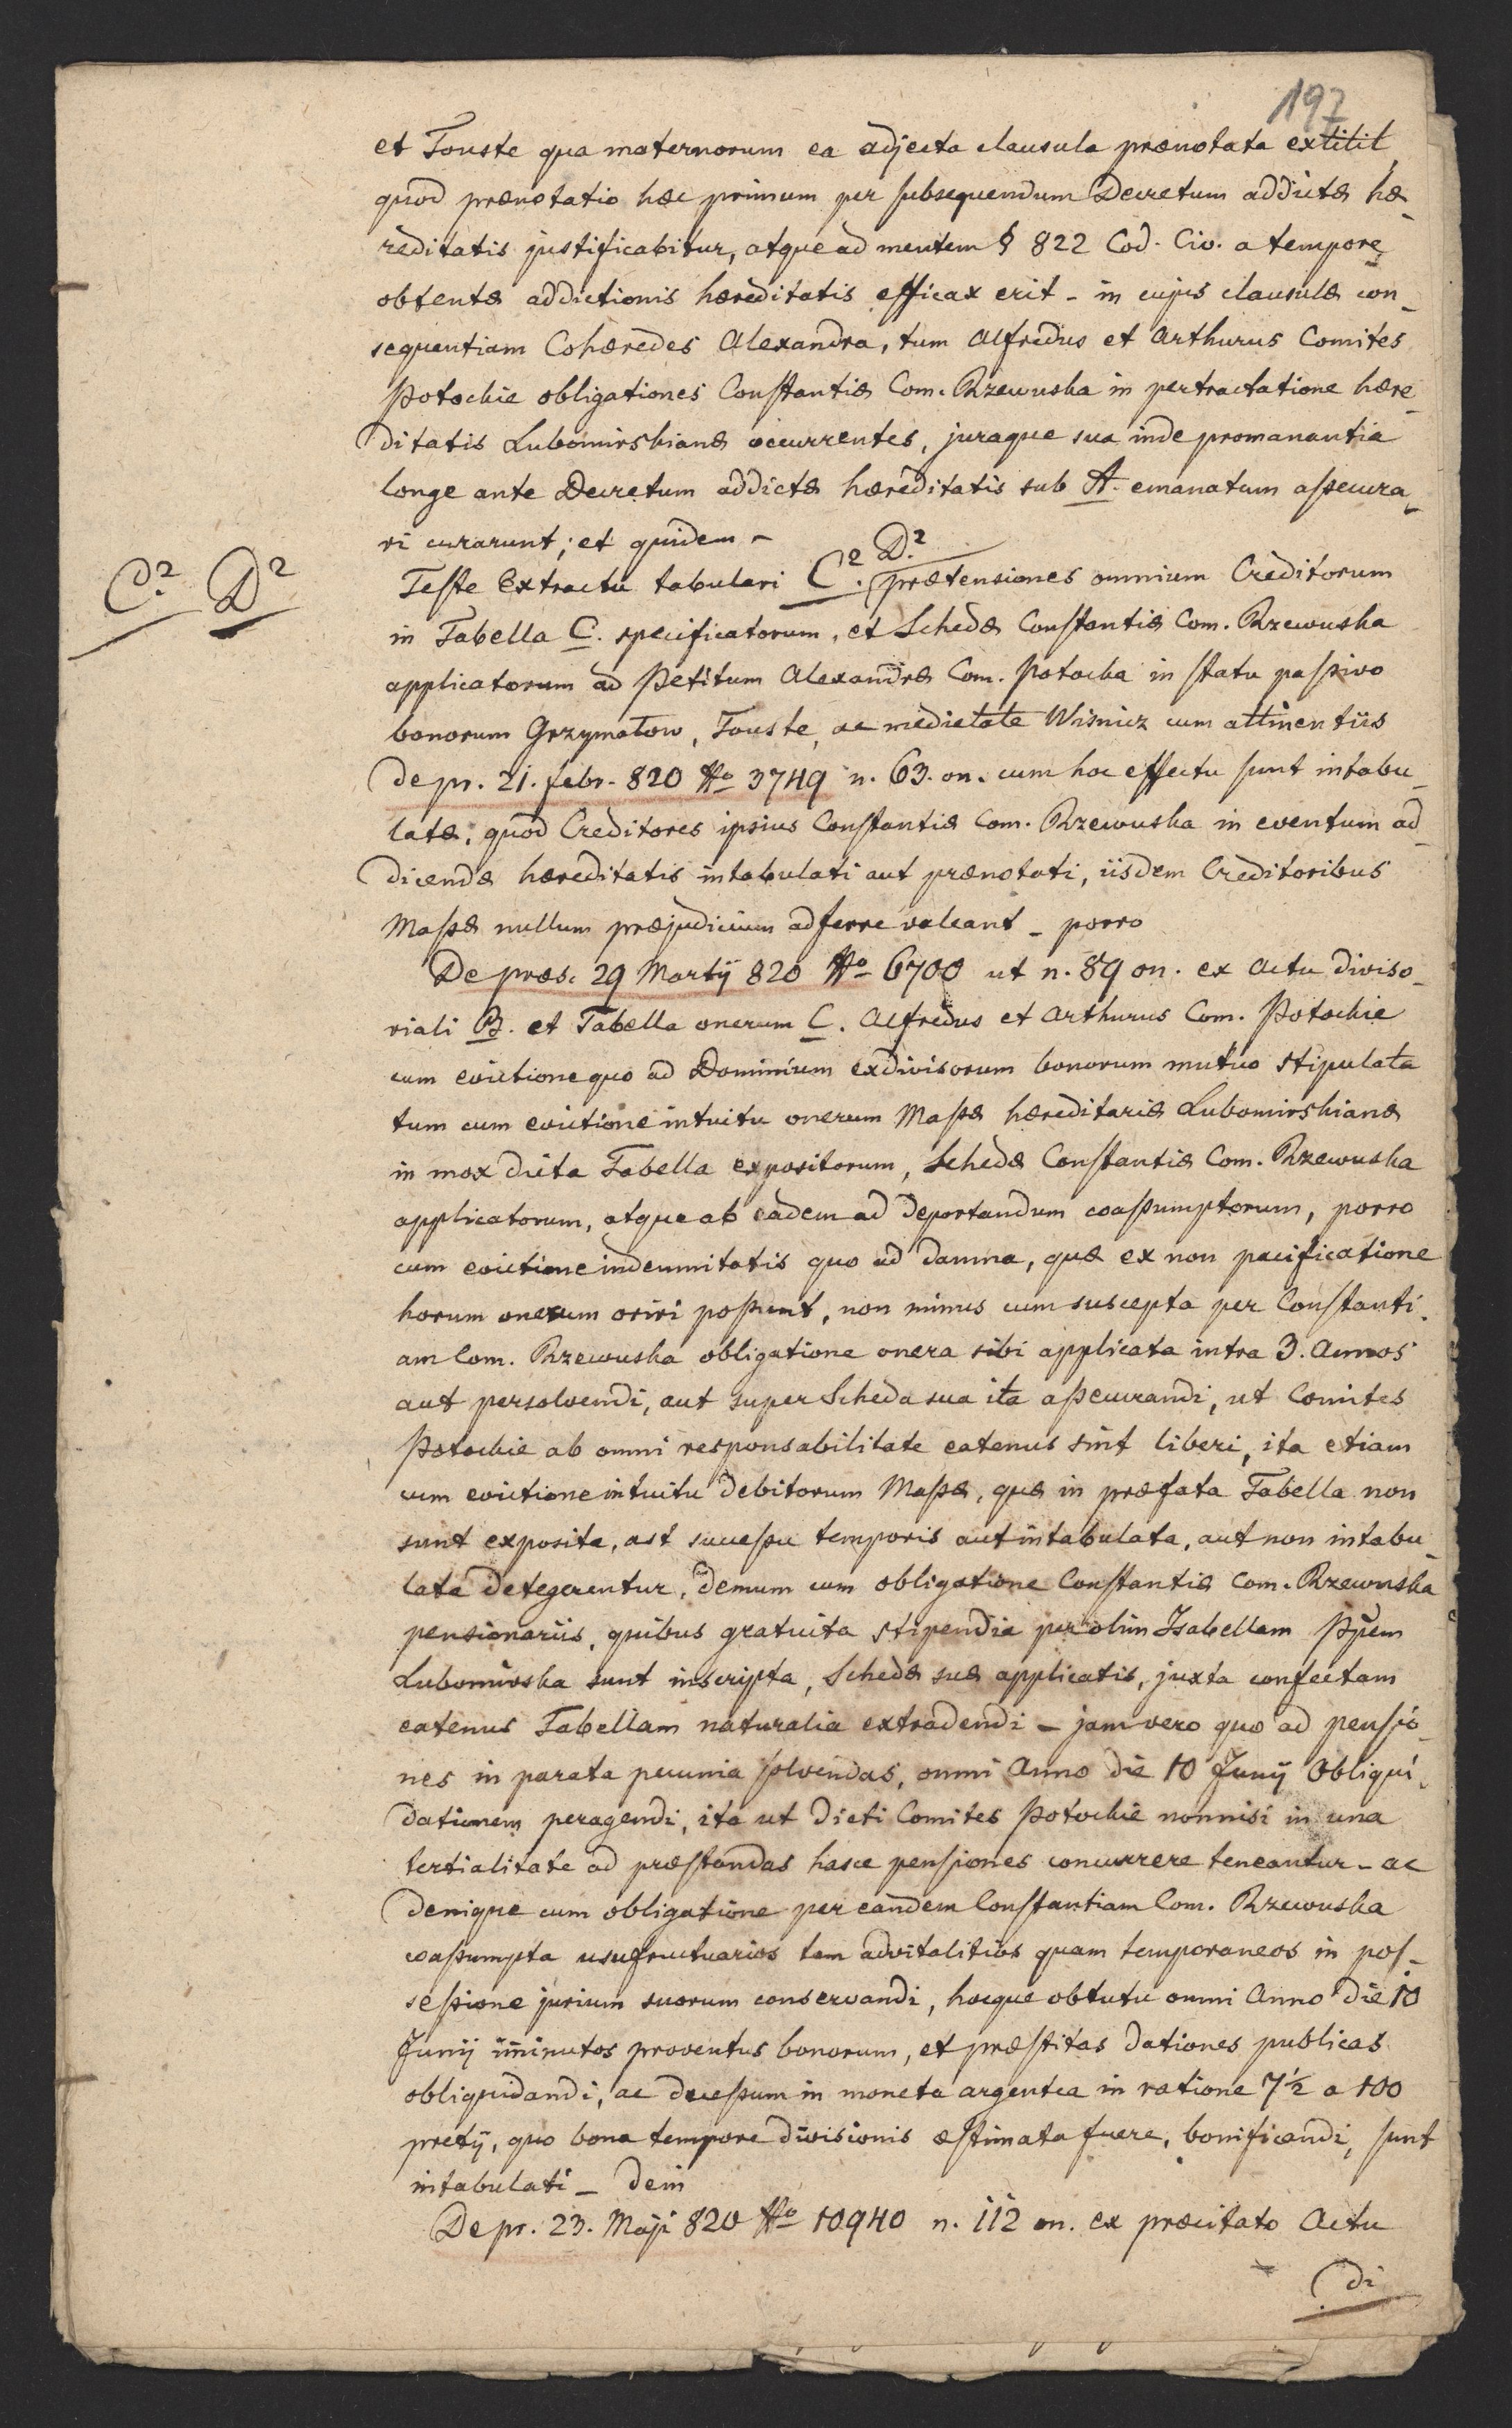 197
et Touste qua maternorum ea adjecta clausula prænotata extitit,
quod prænotatio hæc primum per subsequendum Decretum addictæ hæ-
reditatis justificabitur, atque ad mentem § 822 Cod. Civ. a tempore
obtentæ addictionis hæreditatis efficax erit - in cujus clausulæ con-
sequentiam Cohæredes Alexandra, tum Alfredus et Arthurus Comites
Potockie obligationes Constantiæ Com. Rzewuska in pertractatione hære-
ditatis Lubomirskianæ occurrentes, juraque sua inde promanantia
longe ante Decretum addictæ hæreditatis sub A. emanatum assecura-
ri curarunt; et quidem -
C.² D²
Teste Extractu tabulari C.² D.² prætensiones omnium Creditorum
in Tabella C. specificatorum, et Schedæ Constantiæ Com. Rzewuska
applicatorum ad Petitum Alexandræ Com. Potocka in statu passivo
bonorum Grzymałow, Touste, ac medietate Wisnicz cum attinentiis
de pr. 21. febr. 820 No 3749 n. 63. on. cum hoc effectu sunt intabu-
latæ, quod Creditores ipsius Constantiæ Com. Rzewuska in eventum ad-
dicendæ hæreditatis intabulati aut prænotati, iisdem Creditoribus
Massæ nullum præjudicium adferre valeant - porro
De præs. 29 Martij 820 No 6700 ut n. 89 on. ex Actu diviso-
riali B. et Tabella onerum C. Alfredus et Arthurus Com. Potockie
cum evictione quo ad Dominium exdivisorum bonorum mutuo stipulata
tum cum evictione intuitu onerum Massæ hæreditariæ Lubomirskianæ
in mox dicta Tabella expositorum, Schedæ Constantiæ Com. Rzewuska
applicatorum, atque ab eadem ad deportandum coassumptorum, porro
cum evictione indemnitatis quo ad damna, quæ ex non pacificatione
horum onerum oriri possunt, non minus cum suscepta per Constanti-
am Com. Rzewuska obligatione onera sibi applicata intra 3. Annos
aut persolvendi, aut super Scheda sua ita assecurandi, ut Comites
Potockie ab omni responsabilitate eatenus sint liberi, ita etiam
cum evictione intuitu debitorum Massæ, quæ in præfata Tabella non
sunt exposita, ast successu temporis aut intabulata, aut non intabu-
lata detegerentur, demum cum obligatione Constantiæ Com. Rzewuska
pensionariis, quibus gratuita stipendia per olim Isabellam Ppem
Lubomirska sunt inscripta, Schedæ suæ applicatis, juxta confectam
eatenus Tabellam naturalia extradendi - jam vero quo ad pensio-
nes in parata pecunia solvendas, omni Anno die 10 Junij Obliqui-
dationem peragendi, ita ut dicti Comites Potockie nonnisi in una
tertialitate ad præstandas hasce pensiones concurrere teneantur - ac
denique cum obligatione per eandem Constantiam Com. Rzewuska
coassumpta usufructuarios tam advitalitios quam temporaneos in pos-
sessione jurium suorum conservandi, hocque obtutu omni Anno die 10
Junij iminutos proventus bonorum, et præstitas dationes publicas
obliquidandi, ac decessum in moneta argentea in ratione 7½ a 100
pretij, quo bona tempore divisionis æstimata fuere, bonificandi, sunt
intabulati - dein
De pr. 23. Maji 820 No 10940 n. 112 on. ex præcitato Actu
di